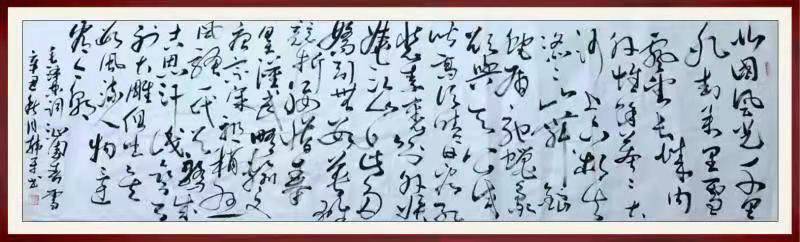 北国风光千里
冰封万里雪
飘望长城内
外惟余莽々大
河上下顿失
滔々山舞银
蛇原驰蜡象
欲与天公试
比高须晴日看红
装素裹分外妖
娆江山如此多
娇引无数英雄
竞折腰惜秦
皇汉武略输文
采唐宗宋祖稍逊
风骚一代天骄成
吉思汗只识弯弓
射大雕俱往矣
数风流人物还
看今朝
毛泽东词沁园春雪
辛丑秋月韩平书